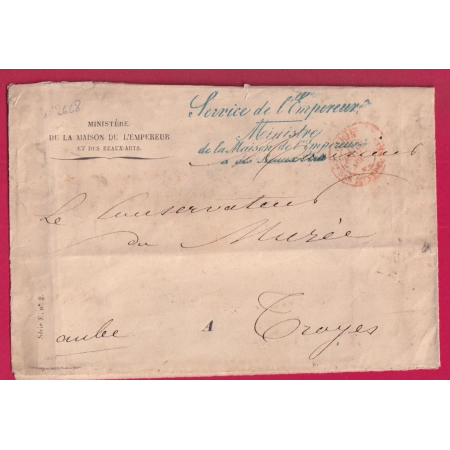 2668
MINISTÈRE
DE LA MAISON DE L'EMPEREUR
ET DES BEAUX-ARTS.
Service de l'Empereur
Ministre
de la Maison de l'Empereur
Le Conservateur
du Musée
aube A Troyes
Série E, n° 2.